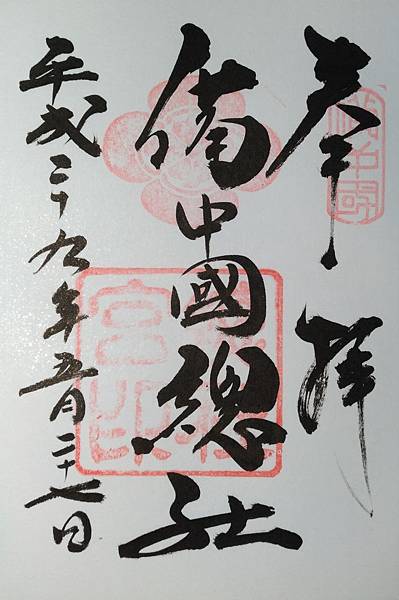 奉拝
備中國總社
平成二十九年五月二十七日
備中國